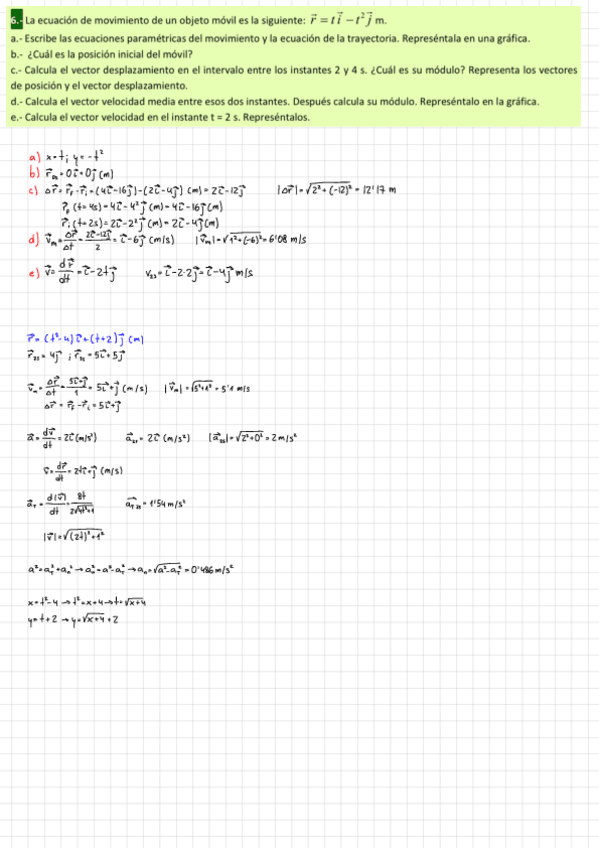 6.- La ecuación de movimiento de un objeto móvil es la siguiente: r⃗ = t i⃗ − t² j⃗ m.
a.- Escribe las ecuaciones paramétricas del movimiento y la ecuación de la trayectoria. Represéntala en una gráfica.
b.- ¿Cuál es la posición inicial del móvil?
c.- Calcula el vector desplazamiento en el intervalo entre los instantes 2 y 4 s. ¿Cuál es su módulo? Representa los vectores
de posición y el vector desplazamiento.
d.- Calcula el vector velocidad media entre esos dos instantes. Después calcula su módulo. Represéntalo en la gráfica.
e.- Calcula el vector velocidad en el instante t = 2 s. Represéntalos.
a) x=t; y=-t²
b) r⃗₀ₛ = 0i⃗+0j⃗ (m)
c) Δr⃗ = r⃗f - r⃗i = (4i⃗-16j⃗)-(2i⃗-4j⃗) (m) = 2i⃗-12j⃗ |Δr⃗| = √(2²+(-12)²) = 12'17 m
r⃗f (t=4s) = 4i⃗-4²j⃗ (m) = 4i⃗-16j⃗ (m)
r⃗i (t=2s) = 2i⃗-2²j⃗ (m) = 2i⃗-4j⃗ (m)
d) v⃗m = Δr⃗/Δt = (2i⃗-12j⃗)/2 = i⃗-6j⃗ (m/s) |v⃗m| = √(1²+(-6)²) = 6'08 m/s
e) v⃗ = dr⃗/dt = i⃗-2tj⃗ v₂ₛ = i⃗-2·2j⃗ = i⃗-4j⃗ m/s
r⃗ = (t²-4)i⃗+(t+2)j⃗ (m)
r⃗₂ₛ = 4j⃗ ; r⃗₃ₛ = 5i⃗+5j⃗
v⃗m = Δr⃗/Δt = (5i⃗+j⃗)/1 = 5i⃗+j⃗ (m/s) |v⃗m| = √(5²+1²) = 5'1 m/s
Δr⃗ = r⃗f - r⃗i = 5i⃗+j⃗
a⃗ = dv⃗/dt = 2i⃗ (m/s²) a⃗₂ₛ = 2i⃗ (m/s²) |a⃗₂ₛ| = √(2²+0²) = 2 m/s²
v⃗ = dr⃗/dt = 2ti⃗+j⃗ (m/s)
a⃗T = d|v⃗|/dt = 8t/(2√(4t²+1)) a⃗T ₂ₛ = 1'54 m/s²
|v⃗| = √((2t)²+1²)
a² = aT²+an² → an² = a²-aT² → an = √(a²-aT²) = 0'486 m/s²
x = t²-4 → t² = x+4 → t = √(x+4)
y = t+2 → y = √(x+4) + 2